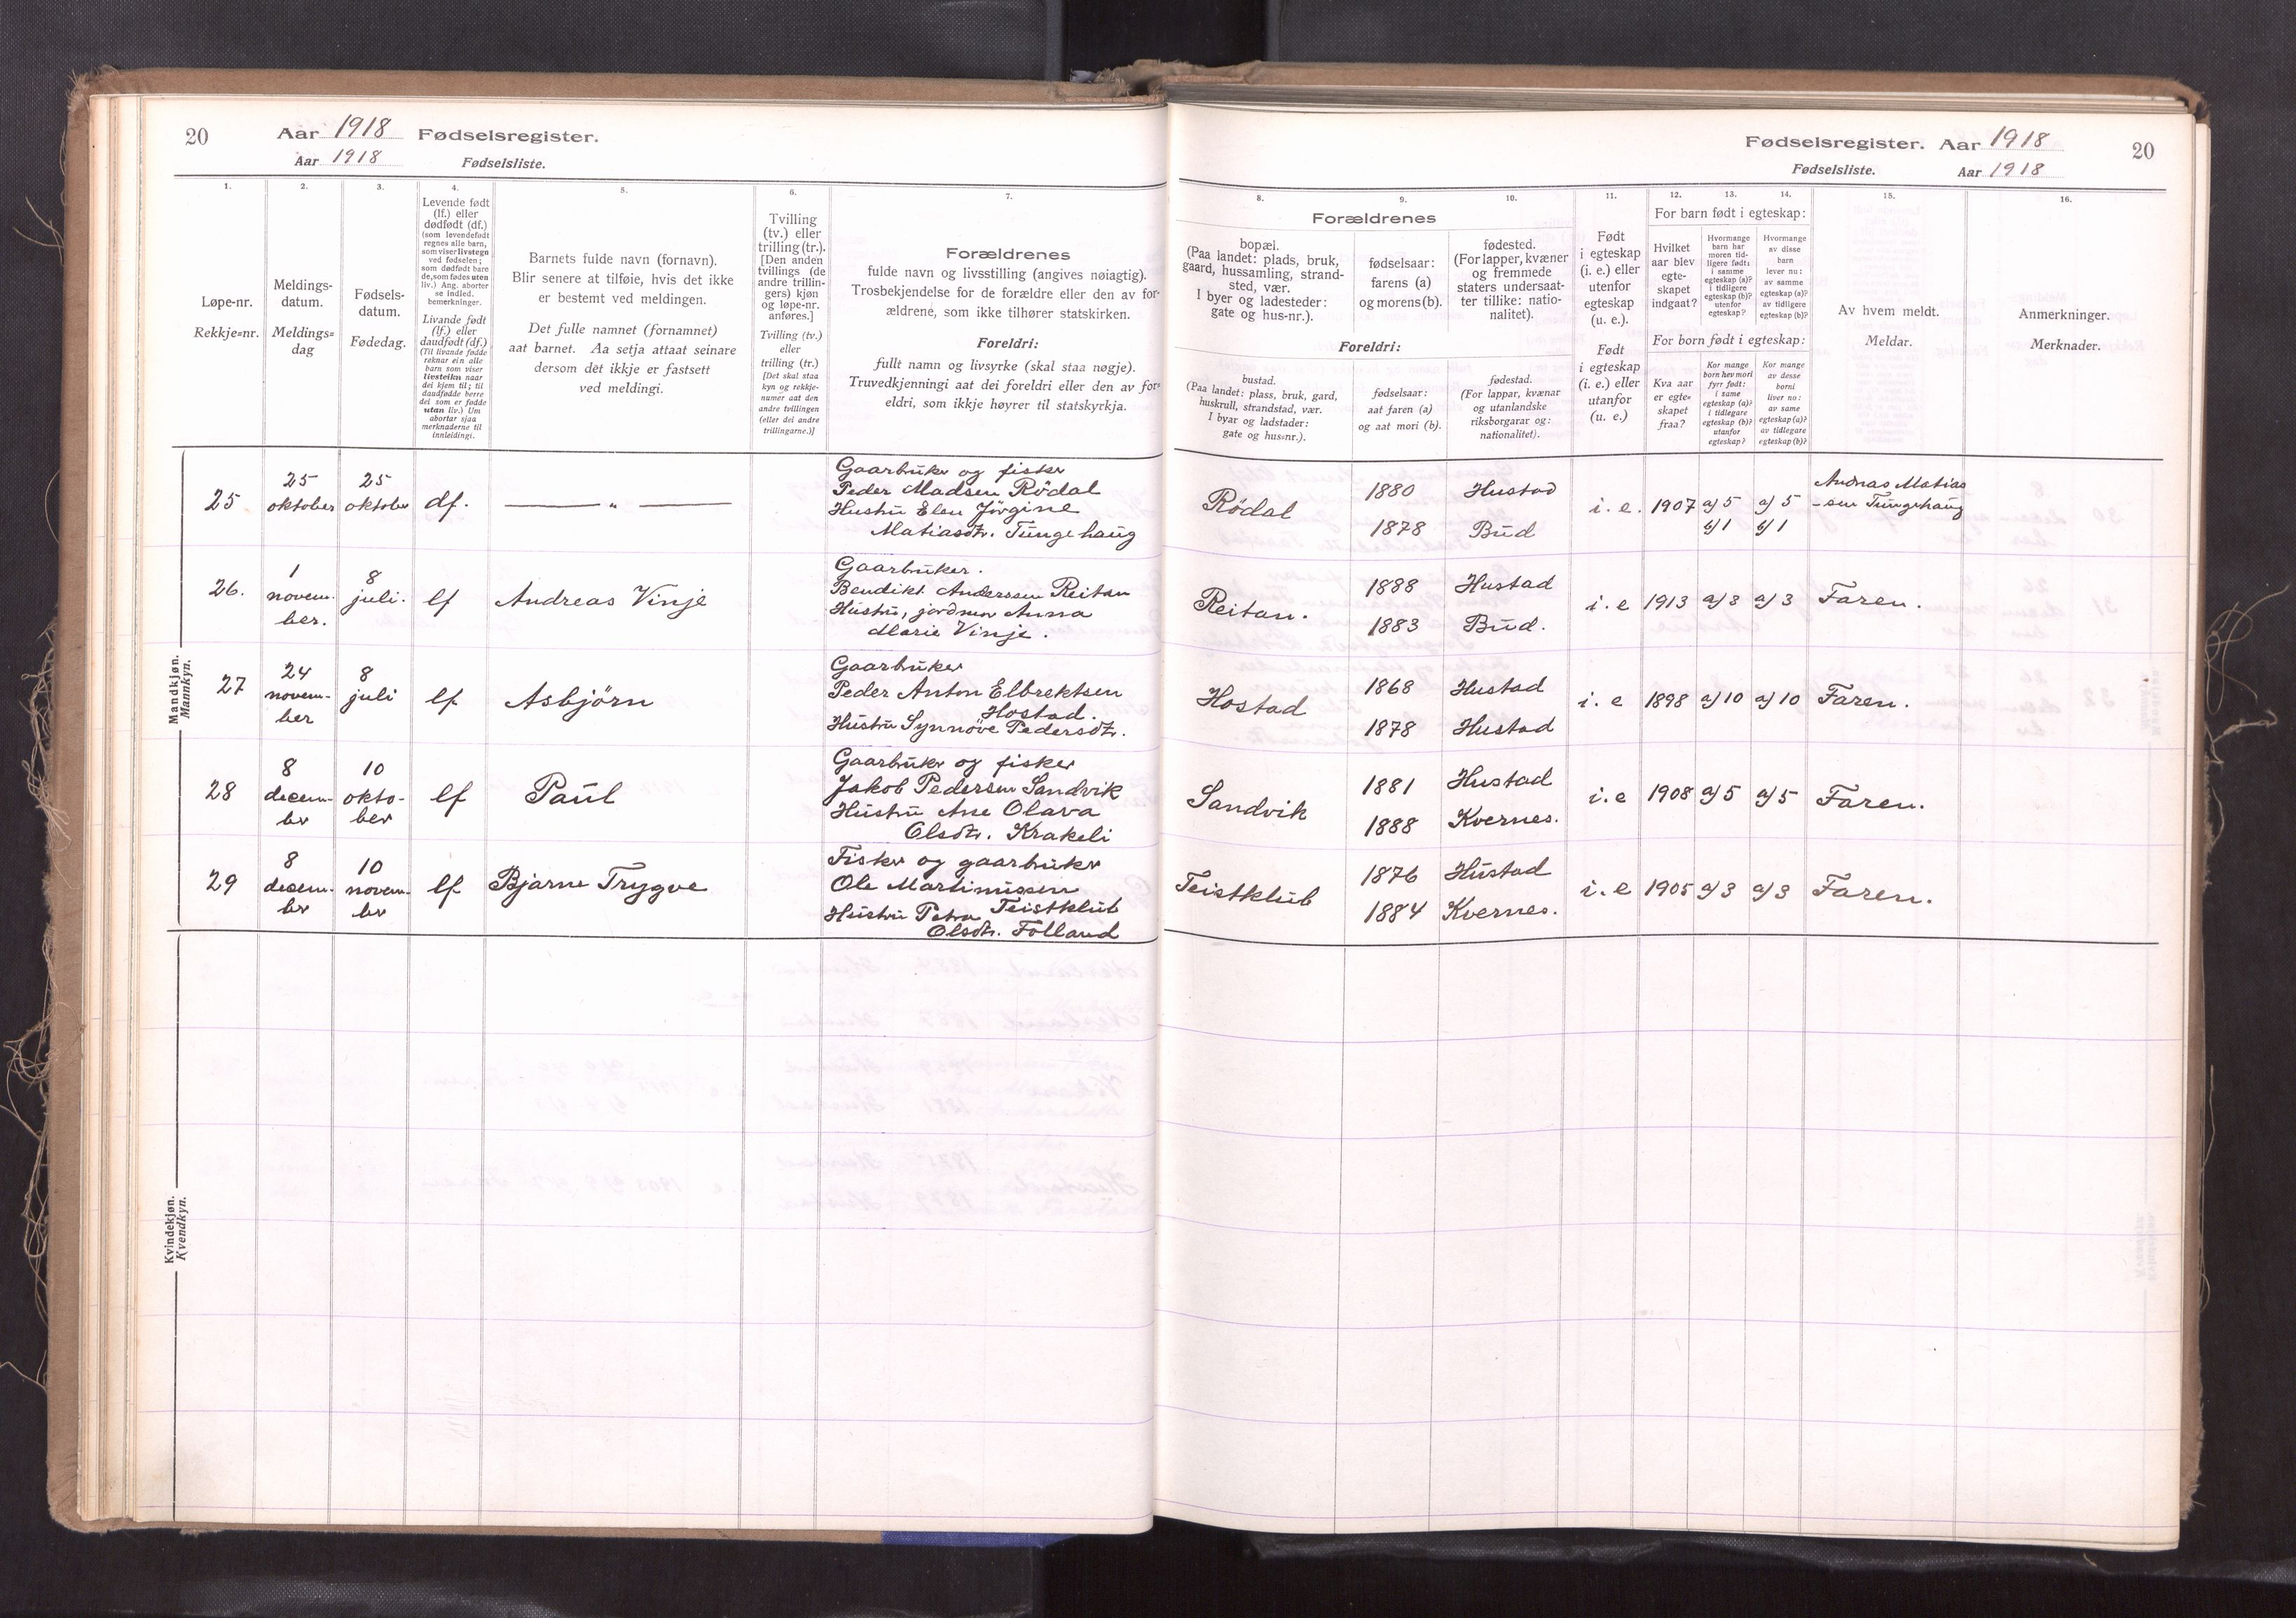 20 Aar 1918 Fødselsregister.
Aar 1918 Fødselsliste.
1. 2. 3. 4. 5. 6. 7.
Løpe-nr.
Rekkje=nr.
Meldings-
datum.
Meldings=
dag
Fødsels-
datum.
Fødedag.
Levende født
(lf.) eller
dødfødt (df.)
(som levendefødt
regnes alle barn,
som viser livstegn
ved fødselen;
som dødfødt bare
de, som fødes uten
liv.) Ang. aborter
se indled.
bemerkninger.
Livande født
(lf.) eller
daudfødt (df.)
(Til livande fødde
reknar ein alle
barn som viser
livsteikn naar
dei kjem til; til
daudfødde berre
dei som er fødde
utan liv.) Um
abortar sjaa
merknaderne til
innleidingi.
Barnets fulde navn (fornavn).
Blir senere at tilføie, hvis det ikke
er bestemt ved meldingen.
Det fulle namnet (fornamnet)
aat barnet. Aa setja attaat seinare
dersom det ikkje er fastsett
ved meldingi.
Tvilling
(tv.) eller
trilling (tr.).
[Den anden
tvillings (de
andre trillin-
gers) kjøn
og løpe-nr.
anføres.]
Tvilling (tv.)
eller
trilling (tr.)
[Det skal staa
kyn og rekkje-
numer aat den
andre tvillingen
(eller dei andre
trillingarne.)]
Forældrenes
fulde navn og livsstilling (angives nøiagtig).
Trosbekjendelse for de forældre eller den av for-
ældrene, som ikke tilhører statskirken.
Foreldri:
fullt namn og livsyrke (skal staa nøgje).
Truvedkjenningi aat dei foreldri eller den av for=
eldri, som ikkje høyrer til statskyrkja.
Mandkjøn.
Mannkyn.
25
25
oktober
25
oktober
df.
— „ —
Gaarbruker og fisker
Peder Madsen Rödal
Hustru Elen Jörgine
Matiasdtr. Tungehaug
26.
1
novem-
ber.
8
juli.
lf
Andreas Vinje
Gaarbruker.
Bendikt Anderssen Reitan
Hustru, jordmor Anna
Marie Vinje.
27
24
novem-
ber
8
juli
lf.
Asbjörn
Gaarbruker
Peder Anton Elbrektsen
Hostad.
Hustru Synnöve Pedersdtr.
28
8
decem-
ber
10
okto-
ber
lf
Paul
Gaarbruker og fisker
Jakob Pedersen Sandvik
Hustru Ane Olava
Olsdtr. Krakeli
29
8
desem-
ber
10
novem-
ber
lf
Bjarne Trygve
Fisker og gaarbruker
Ole Martinussen
Teistklub
Hustru Petra
Olsdtr. Folland
Kvindekjøn.
Kvendkyn.
Fødselsregister. Aar 1918 20
Fødselsliste. Aar 1918
8. 9. 10. 11. 12. 13. 14. 15. 16.
Forældrenes
bopæl.
(Paa landet: plads, bruk,
gaard, hussamling, strand-
sted, vær.
I byer og ladesteder:
gate og hus-nr.).
fødselsaar:
farens (a)
og morens (b).
fødested.
(For lapper, kvæner
og fremmede
staters undersaat-
ter tillike: natio-
nalitet).
Foreldri:
bustad.
(Paa landet: plass, bruk, gard,
huskrull, strandstad, vær.
I byar og ladstader:
gate og hus=nr.).
fødselsaar:
aat faren (a)
og aat mori (b).
fødestad.
(For lappar, kvænar
og utanlandske
riksborgarar og:
nationalitet).
Født
i egteskap
(i. e.) eller
utenfor
egteskap
(u. e.).
Født
i egteskap
(i. e.) eller
utanfor
(u. e.)
For barn født i egteskap:
Hvilket
aar blev
egte-
skapet
indgaat?
Hvormange
barn har
moren tid-
ligere født:
i samme
egteskap (a)?
i tidligere
egteskap (b)?
utenfor
egteskap?
Hvormange
av disse
barn
lever nu:
av samme
egteskap (a)?
av tidligere
egteskap (b)?
For born født i egteskap:
Kva aar
er egte=
skapet
fraa?
Kor mange
born hev mori
fyrr født:
i same
egteskap (a)?
i tidlegare
egteskap (b)?
utanfor
egteskap?
Kor mange
av desse
borni
liver no:
av same
egteskap (a)?
av tidlegare
egteskap (b)?
Av hvem meldt.
Meldar.
Anmerkninger.
Merknader.
Rödal
1880 Hustad
1878 Bud
i. e. 1907 a/5 a/5
b/1 b/1
Andreas Matias
-sen Tungehaug
Reitan.
1888 Hustad
1883 Bud.
i. e 1913 a/3 a/3 Faren.
Hostad
1868 Hustad
1878 Hustad
i. e 1898 a/10 a/10 Faren.
Sandvik
1881 Hustad
1888 Kvernes.
i. e 1908 a/5 a/5 Faren.
Teistklub
1876 Hustad
1884 Kvernes.
i. e 1905 a/3 a/3 Faren.